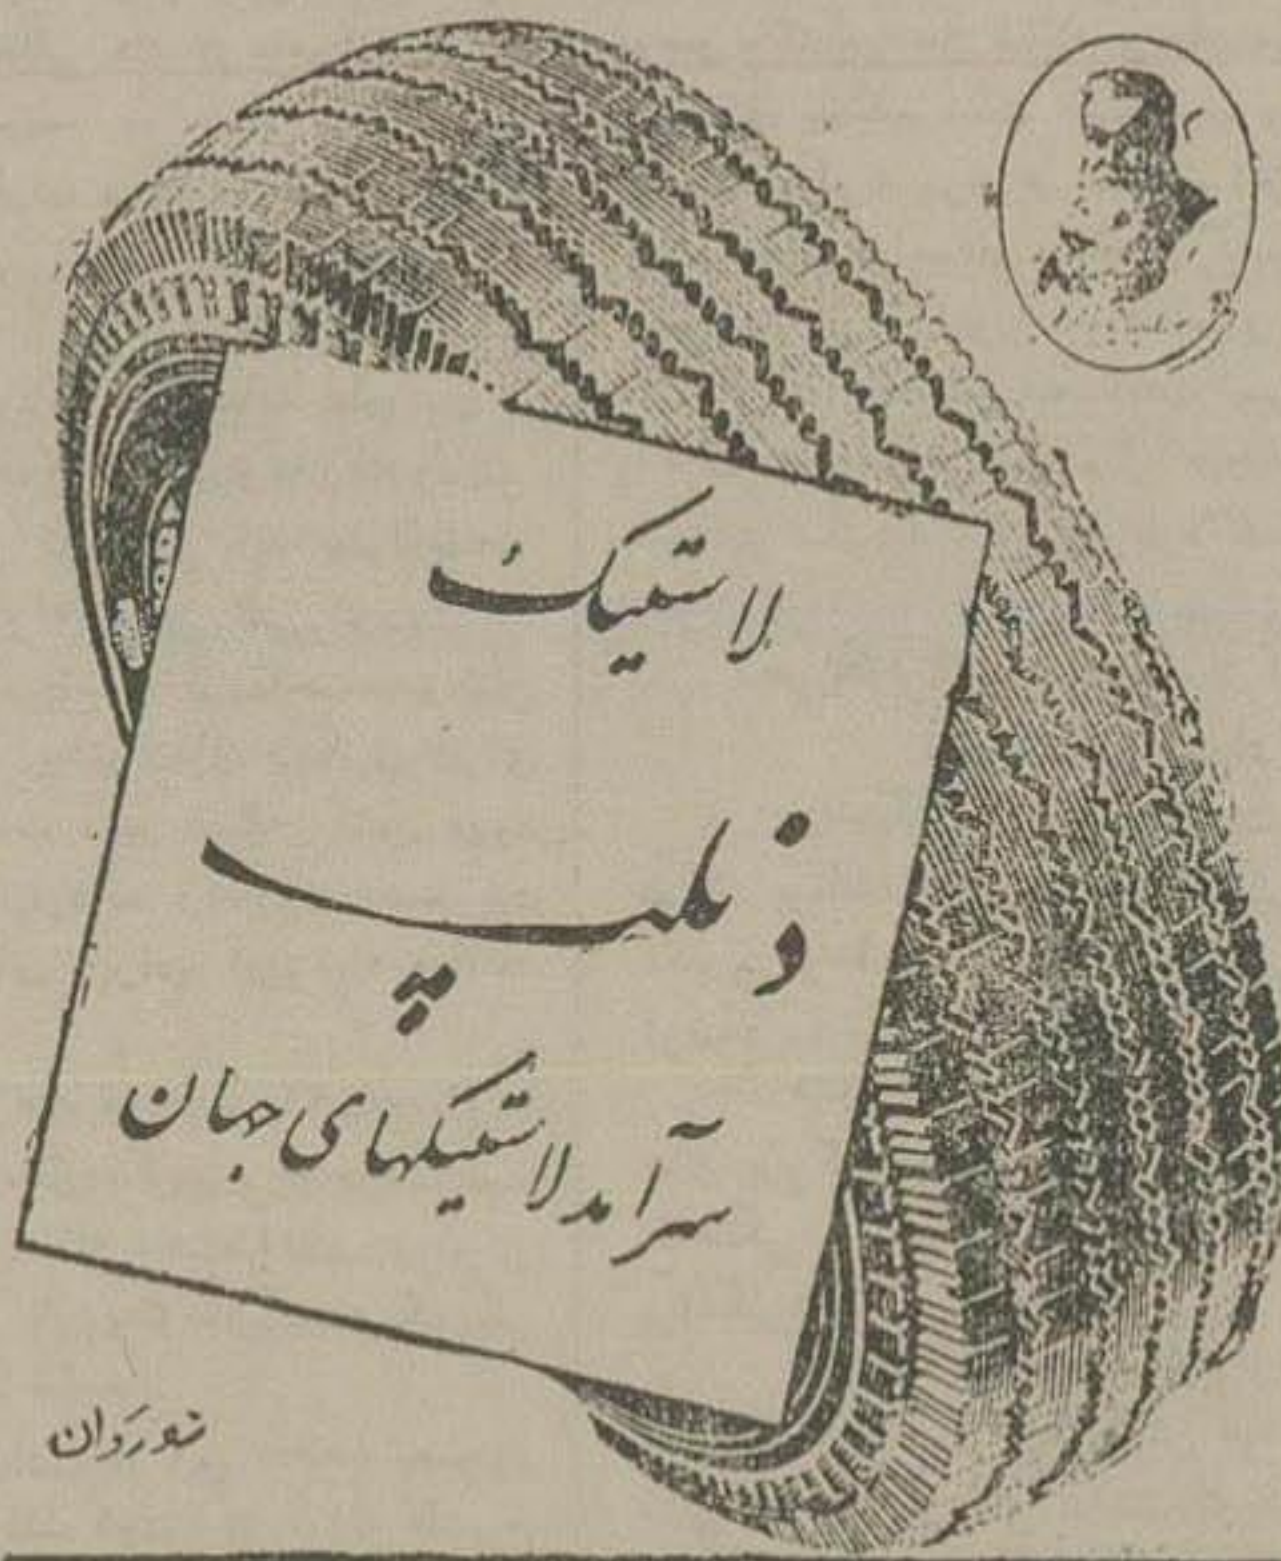 لاستیک
دنلپ
سرآمد لاستیکهای جهان